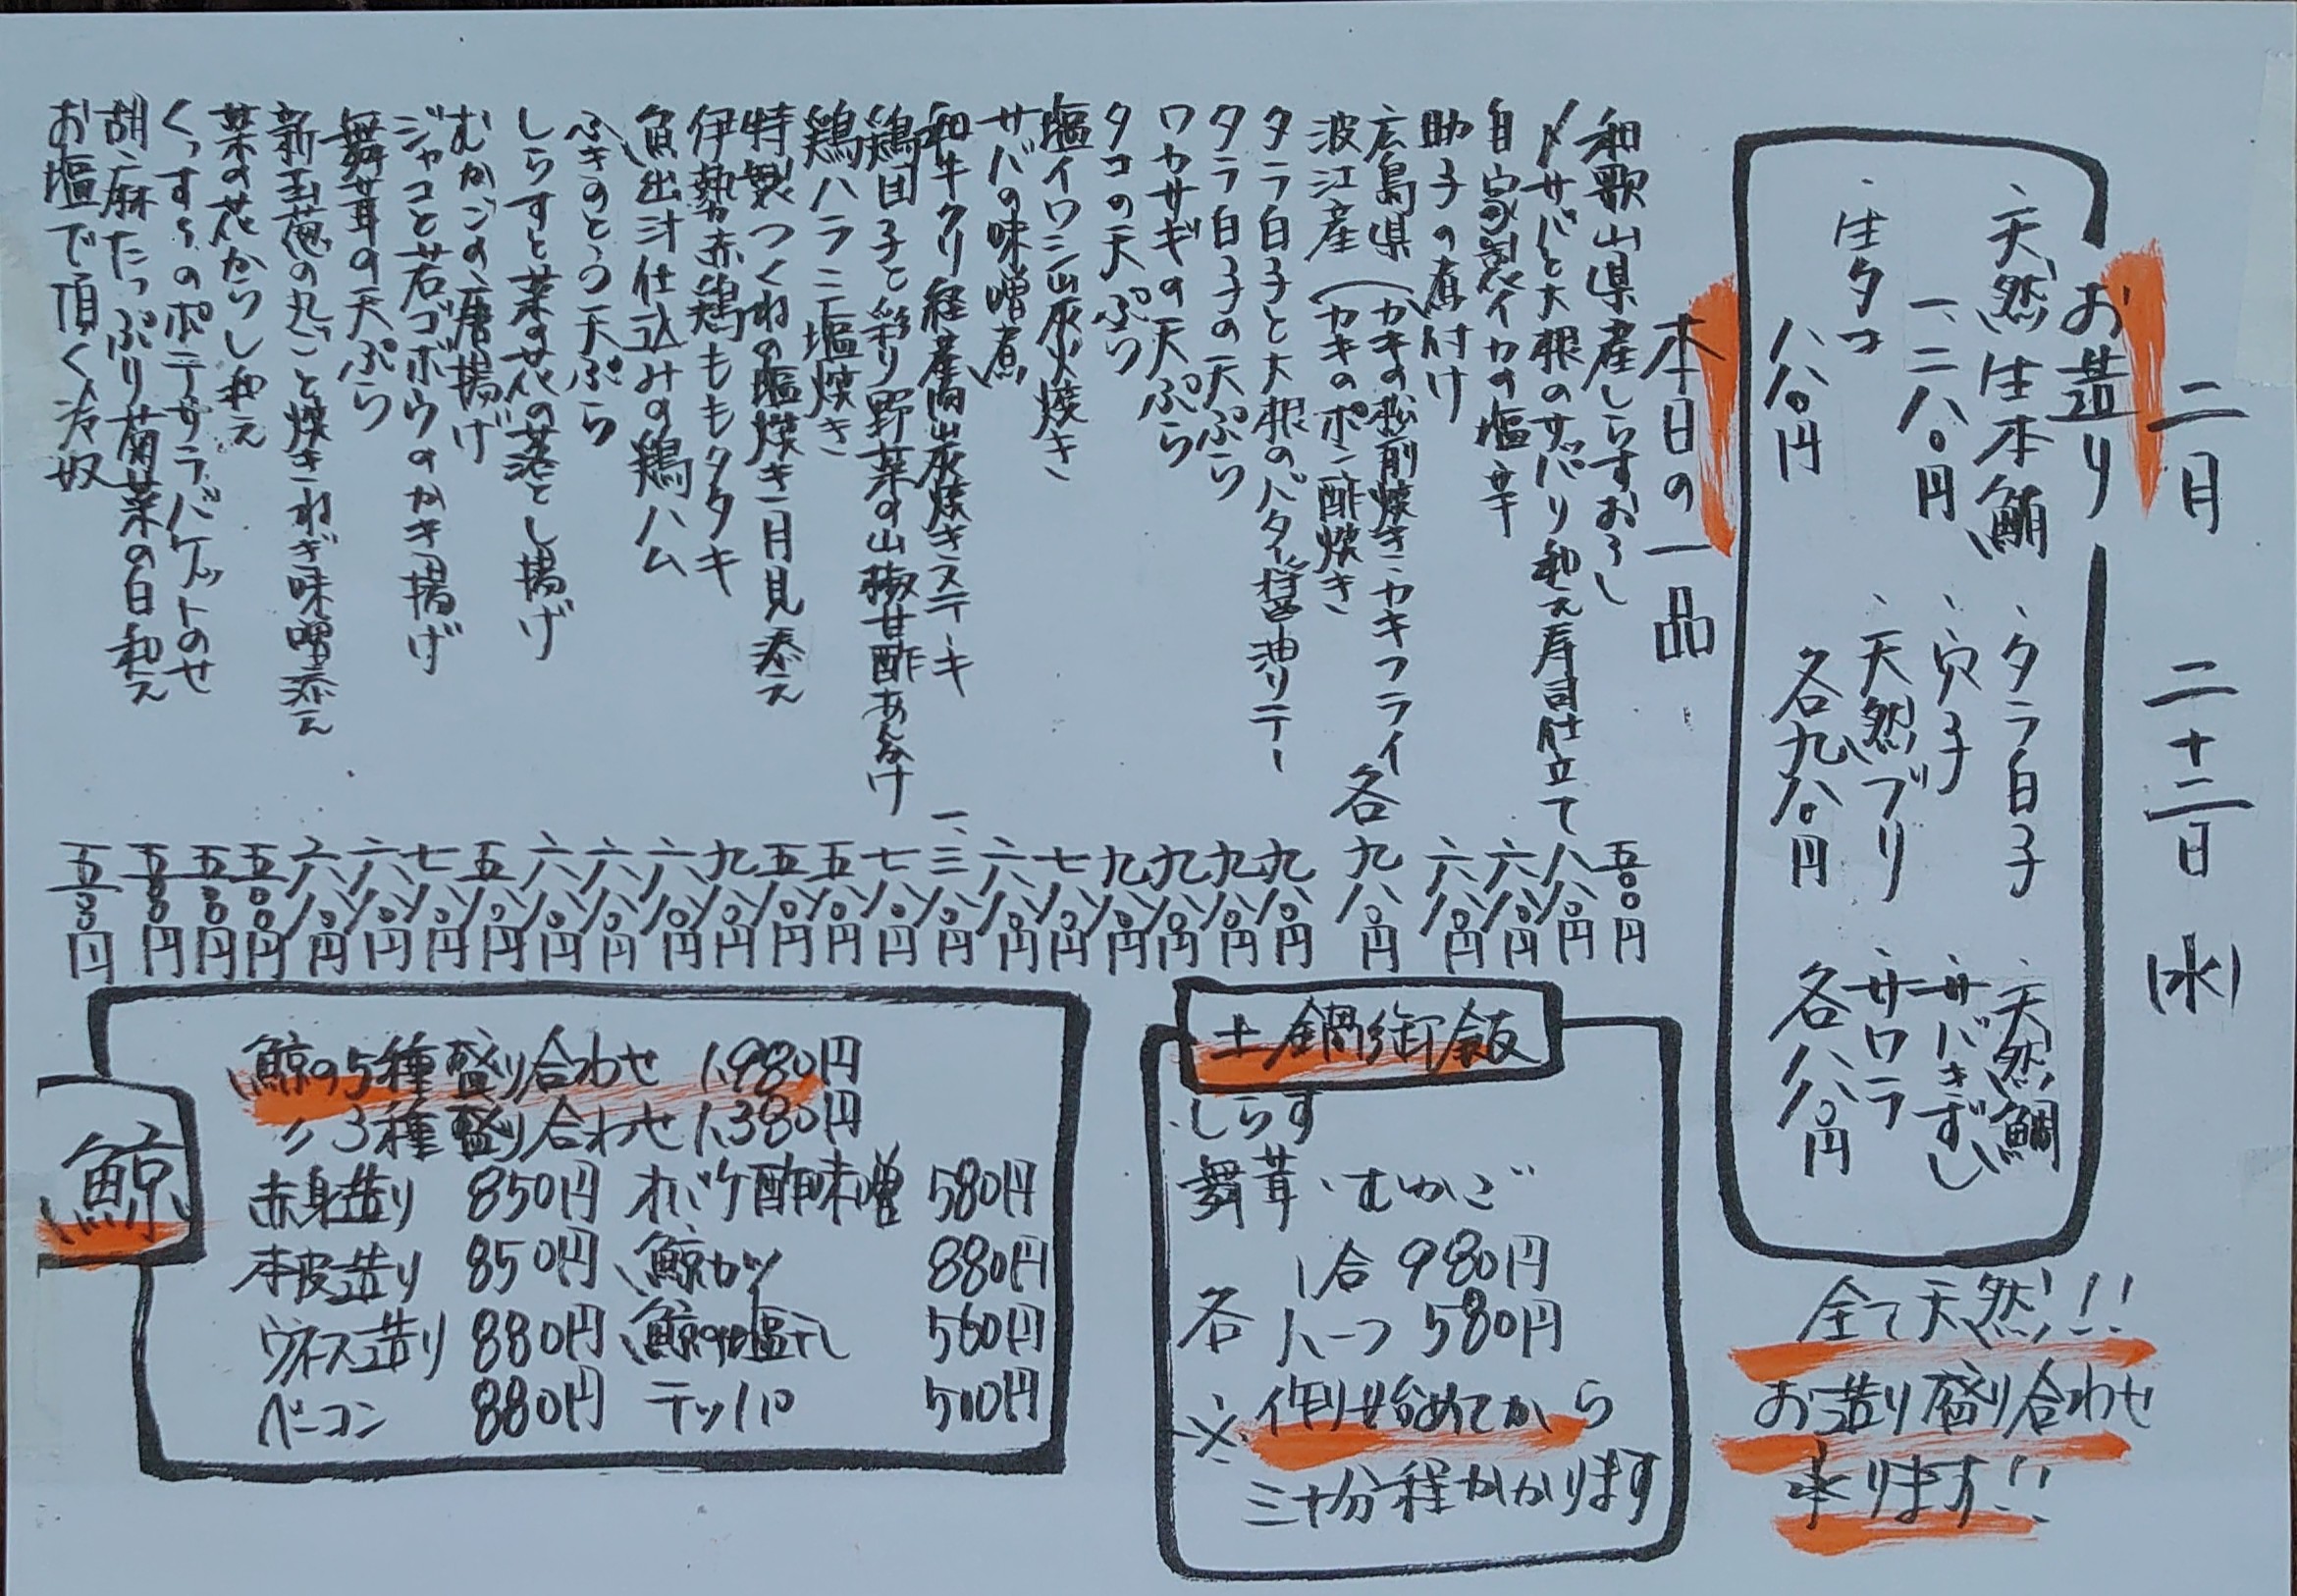 二月 二十二日 (水)
お造り
、天然生本鮪 一、二八〇円
、生タコ 八八〇円
、タラ白子
、穴子
、天然ブリ
各九八〇円
、天然鯛
、サバきずし
、サワラ
各八八〇円
全て天然!!
お造り盛り合わせ
承ります!!
本日の一品
和歌山県産しらすおろし 五〇〇円
〆サバと大根のサッパリ和え寿司仕立て 八八〇円
自家製イカの塩辛 六八〇円
助子の煮付け 六八〇円
広島県 (カキの松前焼き・カキフライ
波江産 (カキのポン酢焼き 各九八〇円
タラ白子と大根のバター醤油ソテー 九八〇円
タラ白子の天ぷら 九八〇円
ワカサギの天ぷら 九八〇円
タコの天ぷら 九八〇円
塩イワシ炭火焼き 七八〇円
サバの味噌煮 六八〇円
和牛クリ経産肉炭焼きステーキ 一、三八〇円
鶏団子と彩り野菜の山椒甘酢あんかけ 七八〇円
鶏ハラミ塩焼き 五八〇円
特製つくねの塩焼き月見添え 五八〇円
伊勢赤鶏ももタタキ 九八〇円
魚出汁仕込みの鶏ハム 六八〇円
ふきのとう天ぷら 六八〇円
しらすと菜の花の落とし揚げ 六八〇円
むかごの唐揚げ 五八〇円
ジャコと若ゴボウのかき揚げ 七八〇円
舞茸の天ぷら 六八〇円
新玉葱の丸ごと焼きねぎ味噌添え 六八〇円
菜の花からし和え 五〇〇円
くっすぅのポテサラバケットのせ 五〇〇円
胡麻たっぷり菊菜の白和え 五〇〇円
お塩で頂く冷奴 五〇〇円
土鍋御飯
、しらす
舞茸・むかご
各 1合 980円
ハーフ 580円
※作り始めてから
三十分程かかります
鯨
鯨の5種盛り合わせ 1,980円
〃 3種盛り合わせ 1,380円
赤身造り 850円 オバケ酢味噌 580円
本皮造り 850円 鯨カツ 880円
ウネス造り 880円 鯨の塩干し 560円
ベーコン 880円 テッパ 500円